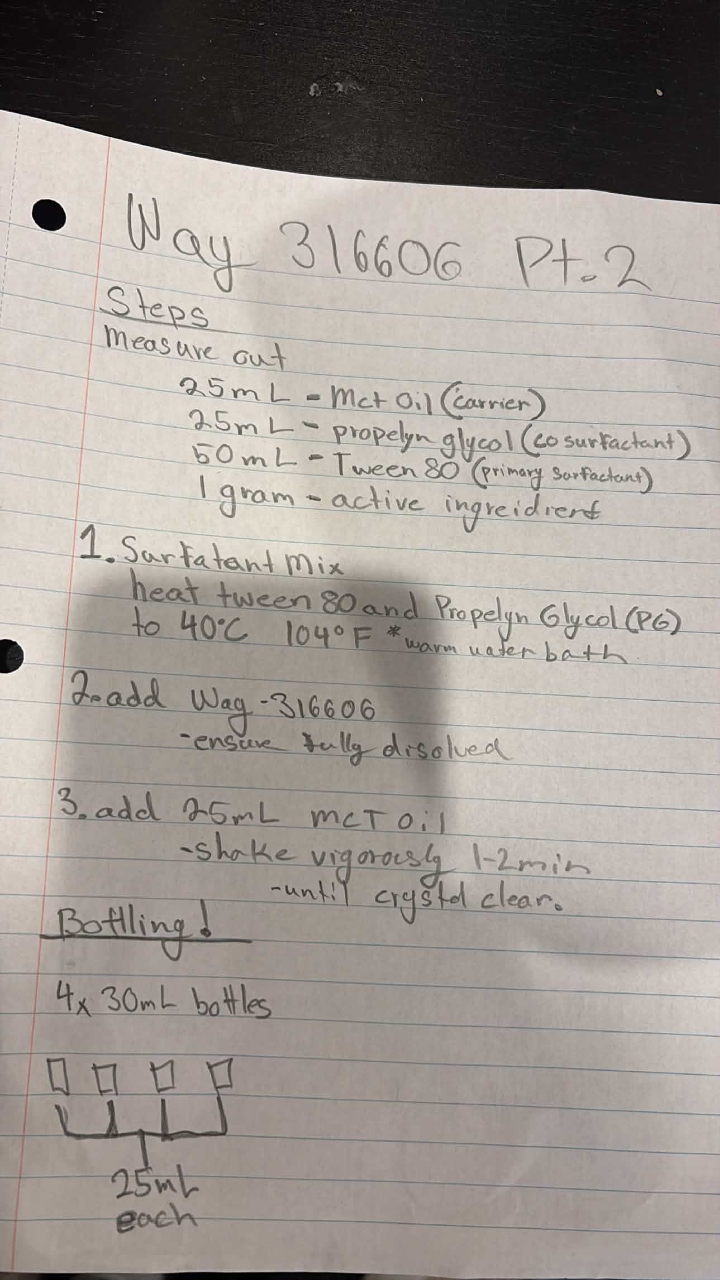 Way 316606 Pt.2
Steps
measure out
25mL - Mct Oil (carrier)
25mL - propelyn glycol (cosurfactant)
50mL - Tween 80 (primary surfactant)
1 gram - active ingreidient
1. Surfatant Mix
heat tween 80 and Propelyn Glycol (PG)
to 40°C 104°F *warm water bath
2. add Way-316606
-ensure fully disolved
3. add 25mL MCT Oil
-shake vigorously 1-2min
-until crystal clear.
Bottling!
4x 30mL bottles
25mL
each